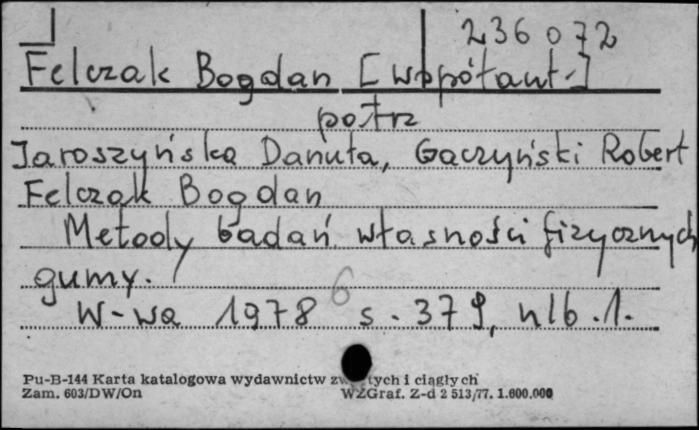 236072
Felczak Bogdan [współaut.]
patrz
Jaroszyńska Danuta, Gaczyński Robert
Felczak Bogdan
Metody badań własności fizycznych
gumy.
6
W-wa 1978 s. 379, nlb. 1.
Pu-B-144 Karta katalogowa wydawnictw tych i ciągłych
Zam. 603/DW/On WZGraf. Z-d 2 513/77. 1.600.000